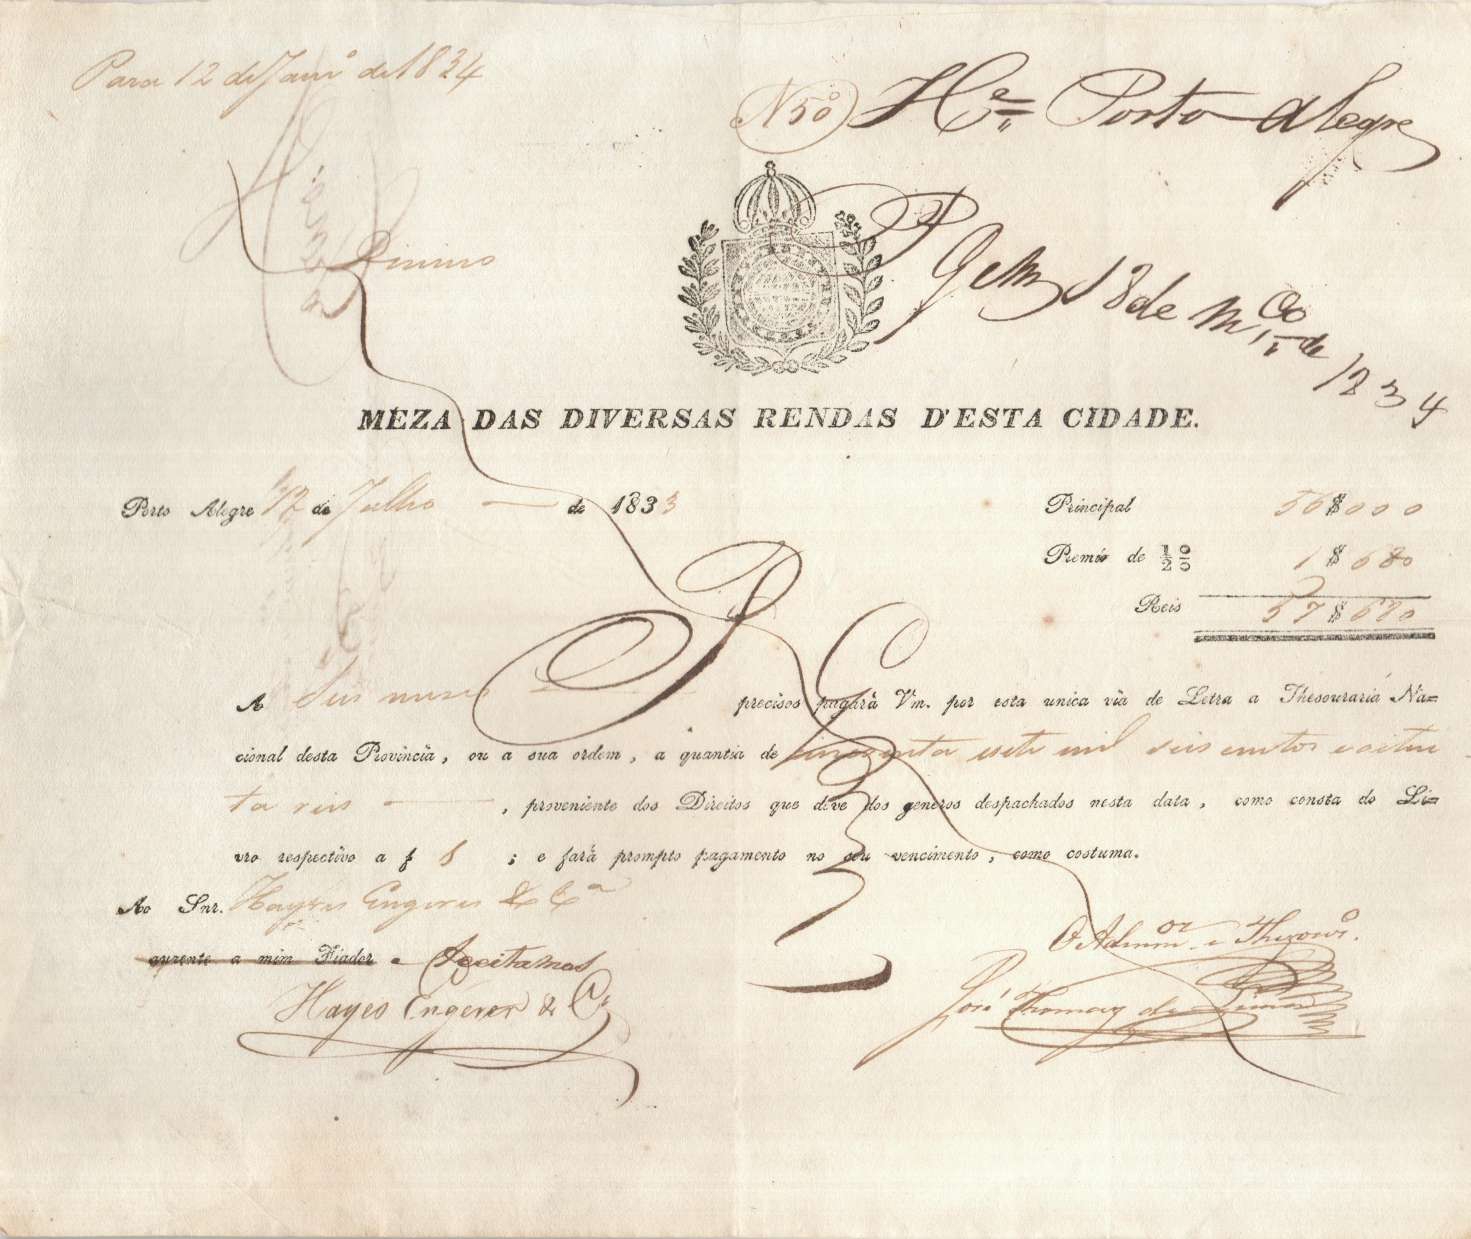 Para 12 de Janrº de 1834
Nº 50 Hce. Porto Alegre
Pg em 18 de Mço de 1834
MEZA DAS DIVERSAS RENDAS D'ESTA CIDADE.
Porto Alegre 12 de Julho de 1833
Principal 56$000
Premio de 1/2 0/0 1$680
Reis 57$680
A Seis mezes precisos pagará Vm. por esta unica via de Letra a Thesouraria Na=
cional desta Provincia, ou a sua ordem, a quantia de cincoenta e sete mil seis centos e oiten
ta reis, proveniente dos Direitos que deve dos generos despachados nesta data, como consta do Li=
vro respectivo a f 8; e fará prompto pagamento no seu vencimento, como costuma.
Ao Snr. Hayes Engerer & Cª
O Admnor e Thezouro.
gurente a mim Fiador Aceitamos
Hayes Engerer & Cª
José Thomaz de Lima